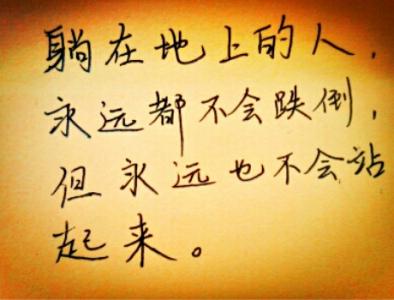 躺在地上的人，
永远都不会跌倒，
但永远也不会站
起来。